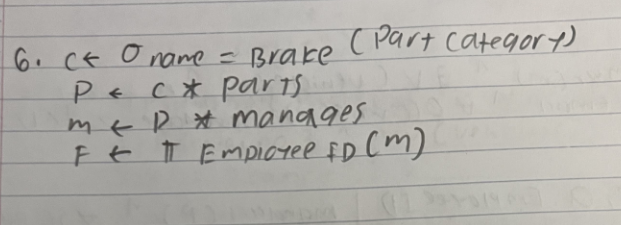 6. C ← σ name = Brake (Part Category)
P ← C * Parts
m ← P * manages
F ← π Employee ID (m)